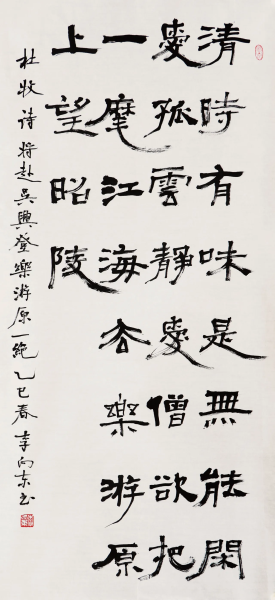 清時有味是無能閑
愛孤雲靜愛僧欲把
一麾江海去樂游原
上望昭陵
杜牧诗將赴吳興登樂游原一絕乙巳春李向东书